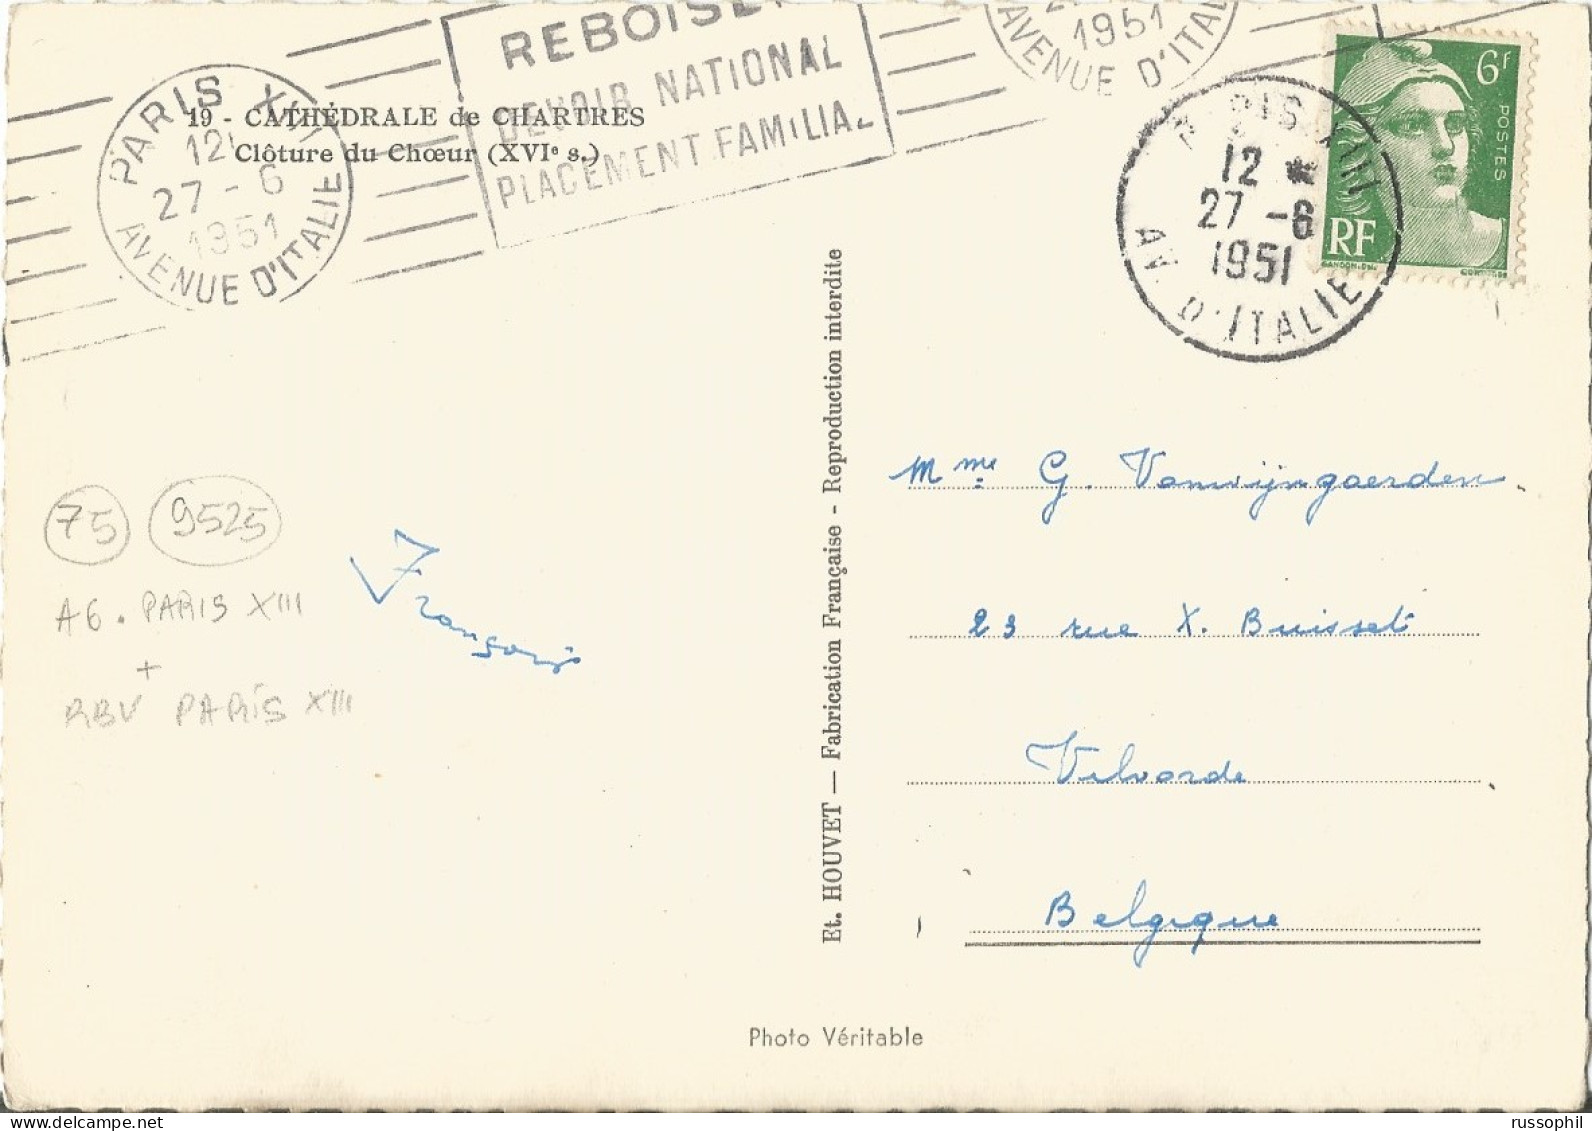 REBOISE
DEVOIR NATIONAL
PLACEMENT FAMILIAL
PARIS XIII
12
27 - 6
1951
AVENUE D'ITALIE
1951
AVENUE D'ITAL
19 - CATHÉDRALE de CHARTRES
Clôture du Chœur (XVIe s.)
PARIS XIII
12 *
27 - 6
1951
AV. D'ITALIE
6f
POSTES
RF
GANDON
75 9525
A6. PARIS XIII
+
RBV PARIS XIII
François
Et. HOUVET — Fabrication Française - Reproduction interdite
Mme G. Vanwijngaerden
23 rue X. Buisset
Vilvorde
Belgique
Photo Véritable
russophil